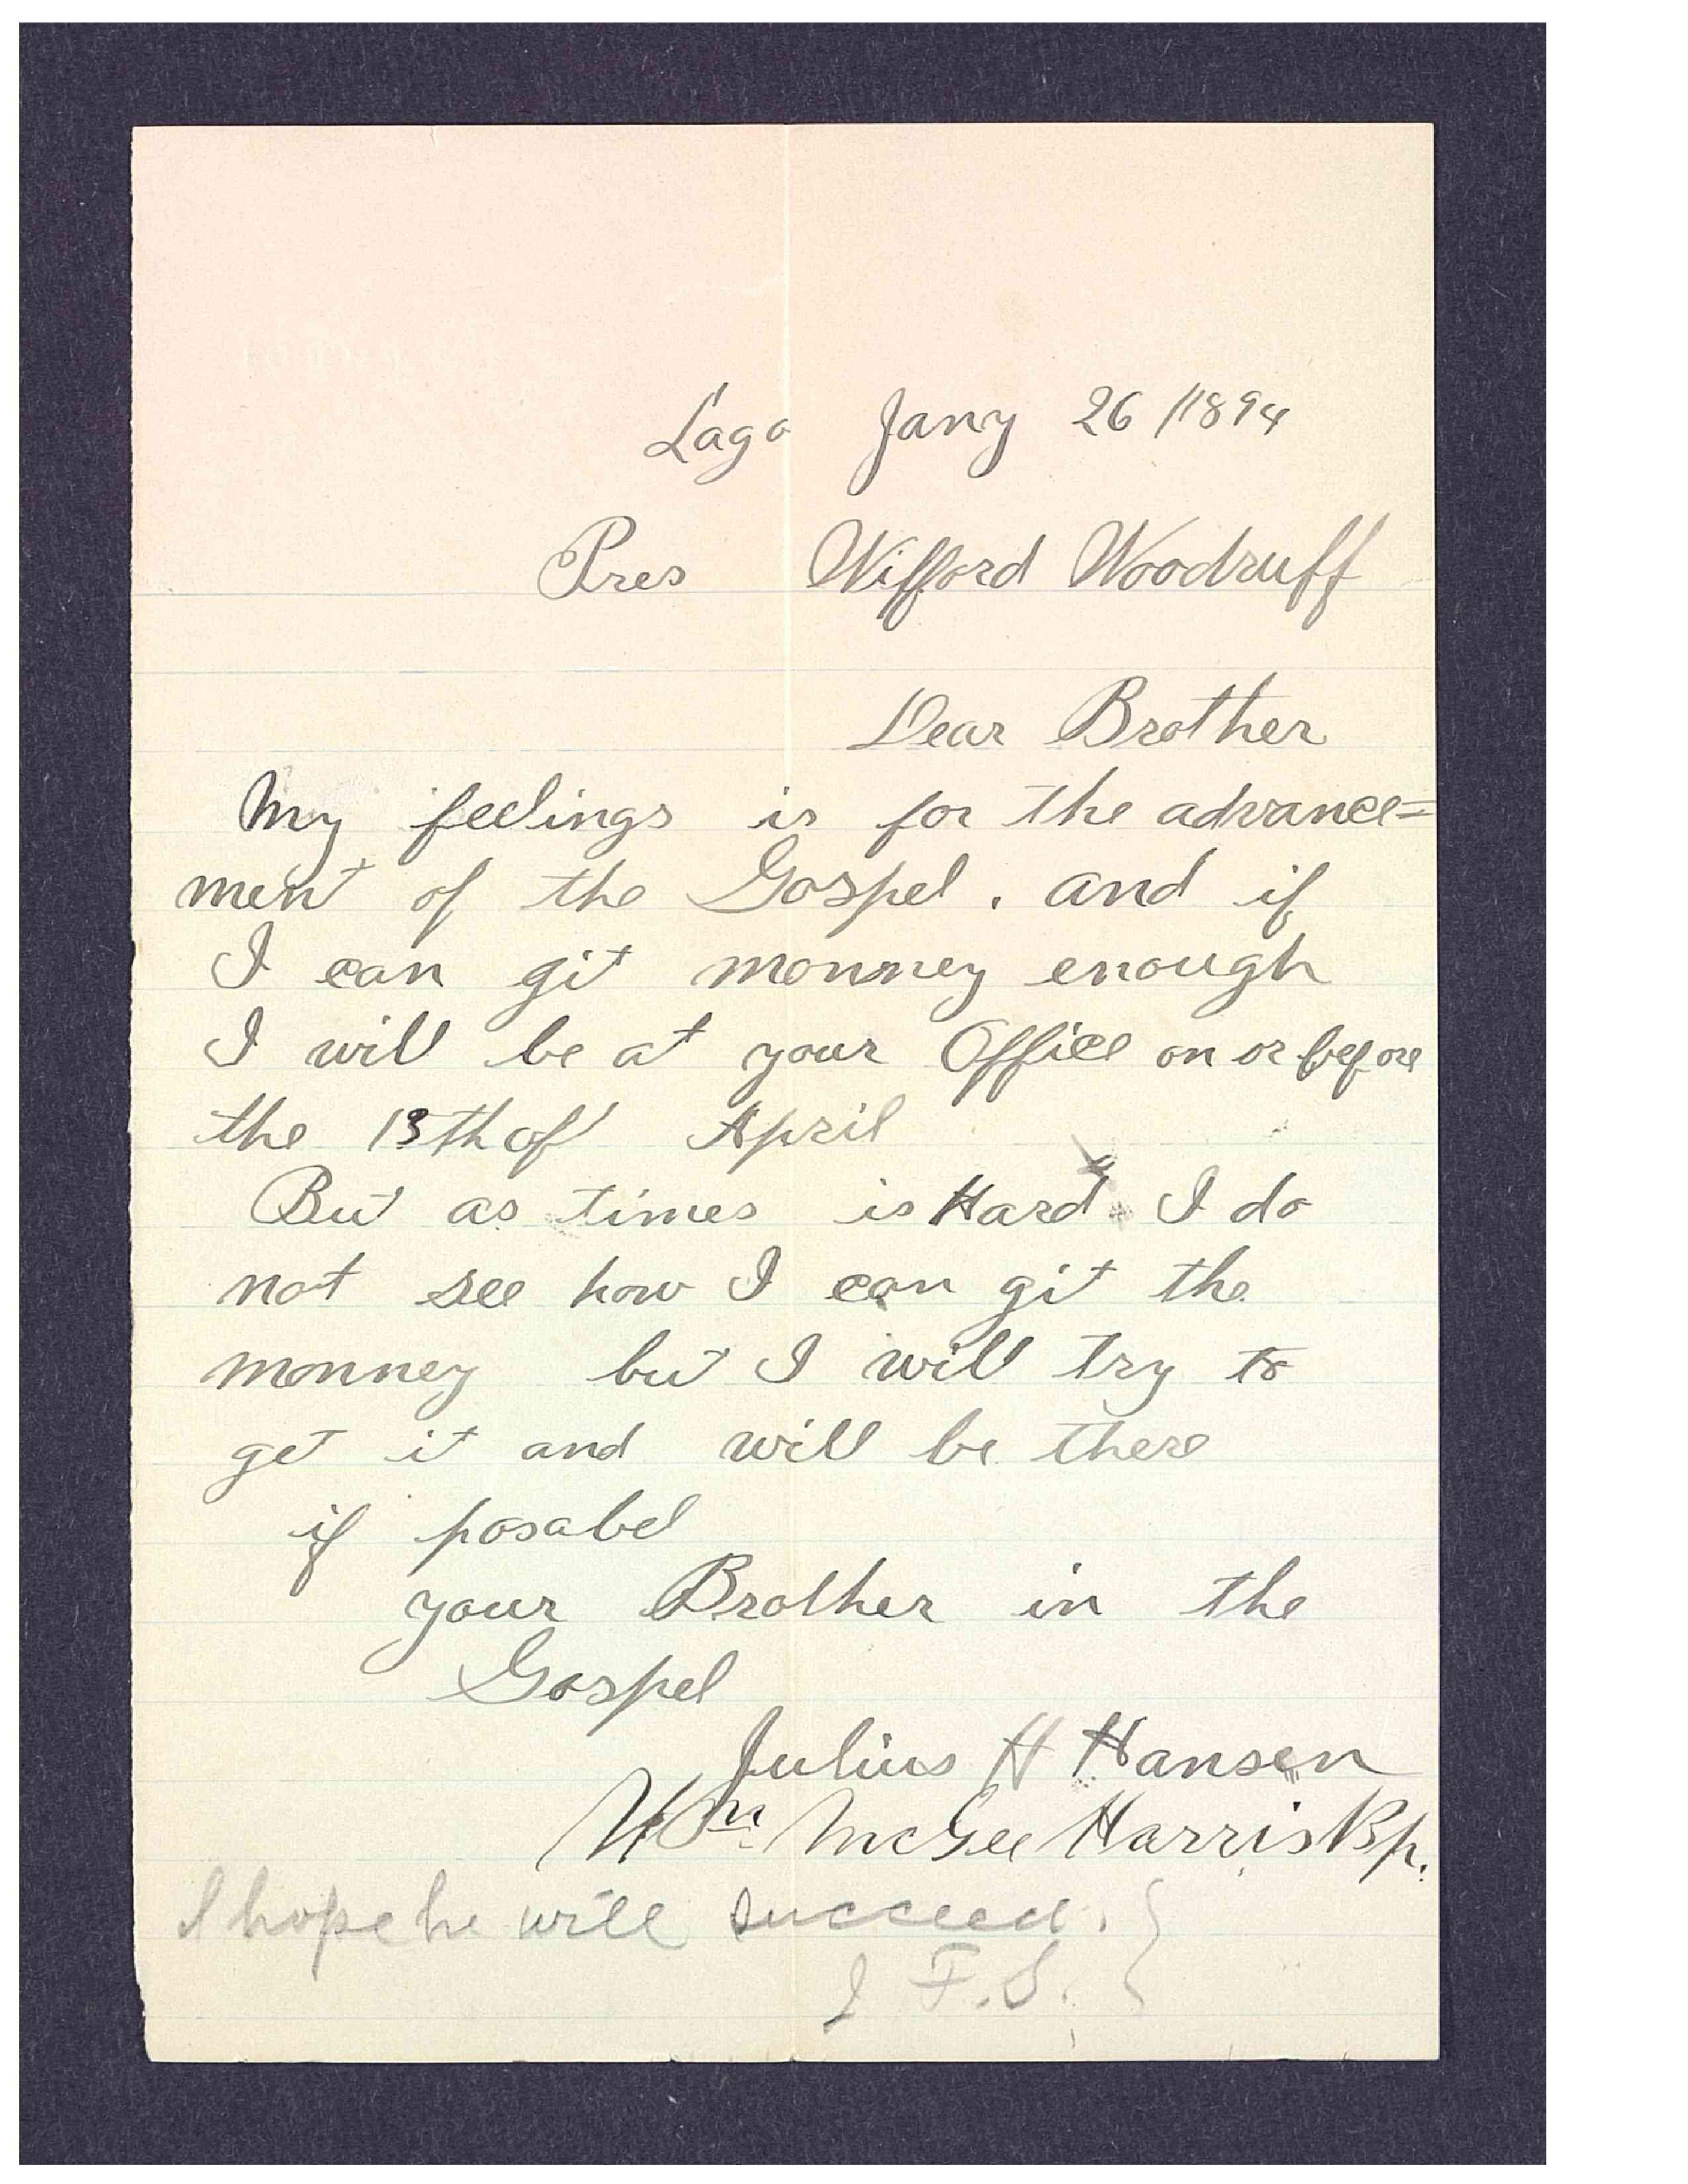 Lago Jany 26/1894
Pres Wilford Woodruff
Dear Brother
My feelings is for the advance=
ment of the Gospel. and if
I can git monney enough
I will be at your Office on or before
the 13th of April
But as times is Hard. I do
not see how I can git the
monney but I will try to
get it and will be there
if posabel
your Brother in the
Gospel
Julius H Hansen
Wm McGee Harris Bp.
I hope he will succeed. }
J F. S. }